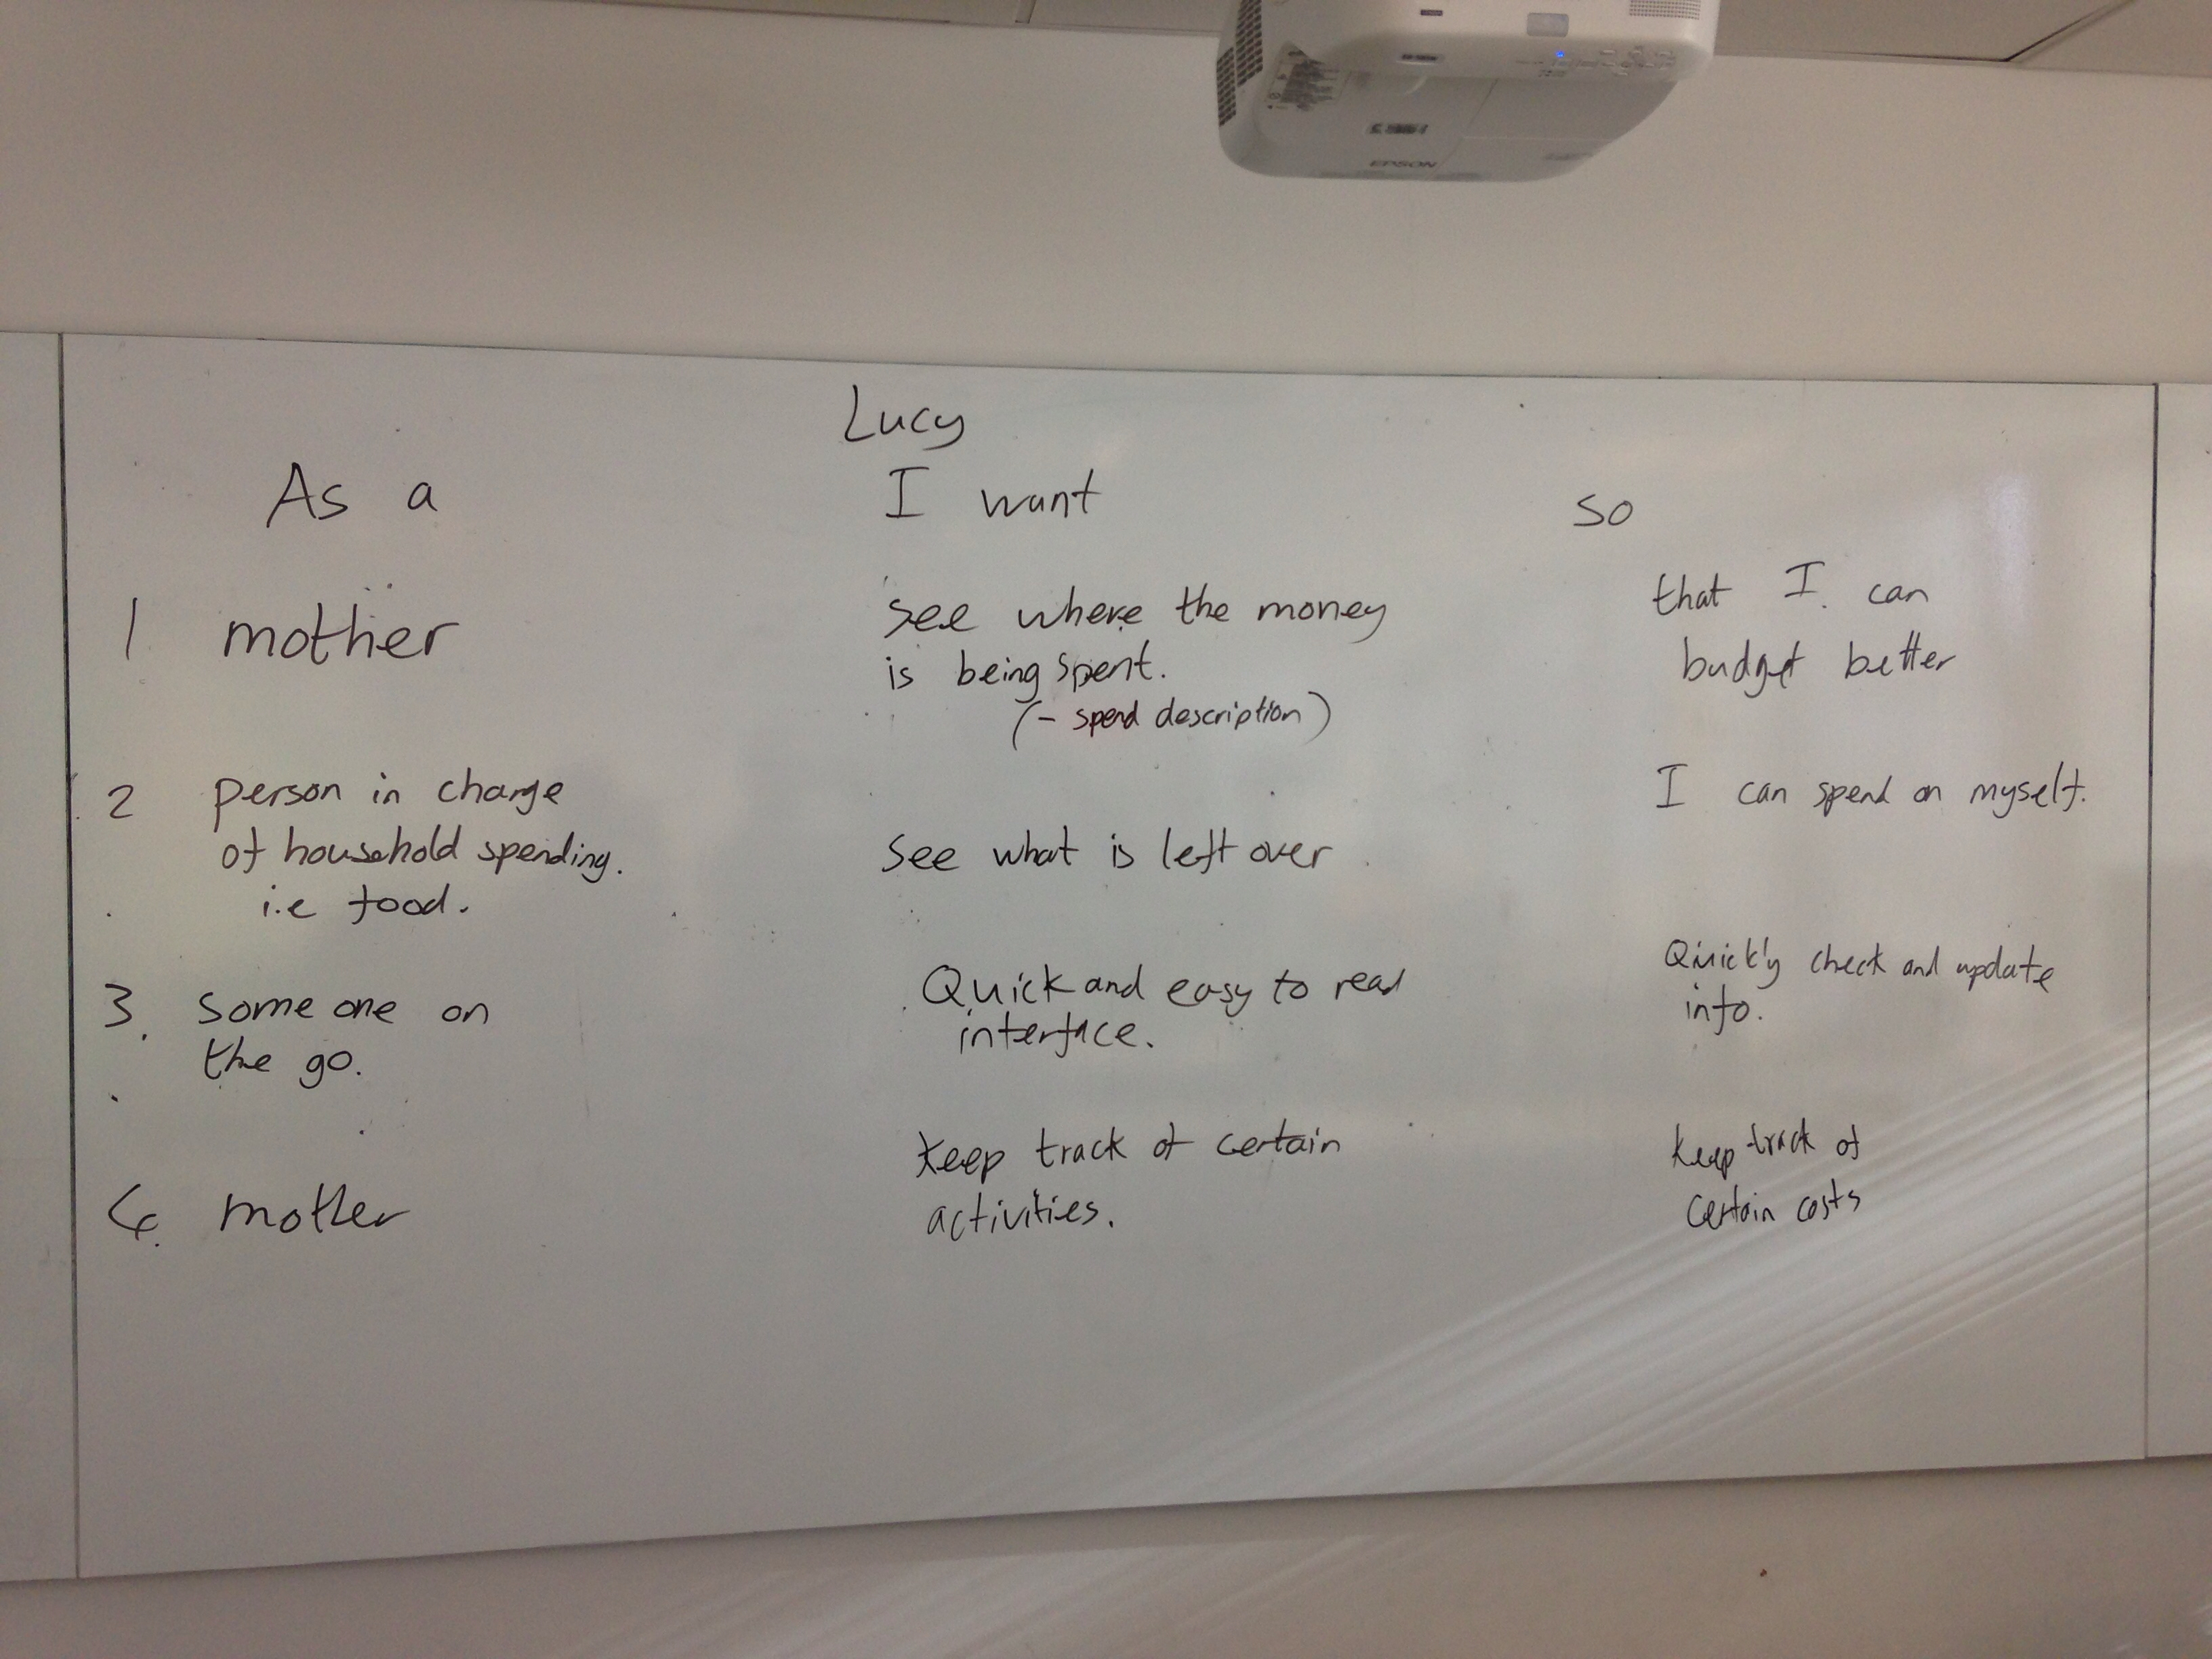 EPSON
Lucy
As a
I want
so
1 mother
see where the money
is being spent.
(- spend description)
that I can
budget better
2 person in charge
of household spending.
i.e food.
see what is left over
I can spend on myself.
3. some one on
the go.
Quick and easy to read
interface.
Quickly check and update
info.
4. mother
keep track of certain
activities.
keep track of
certain costs